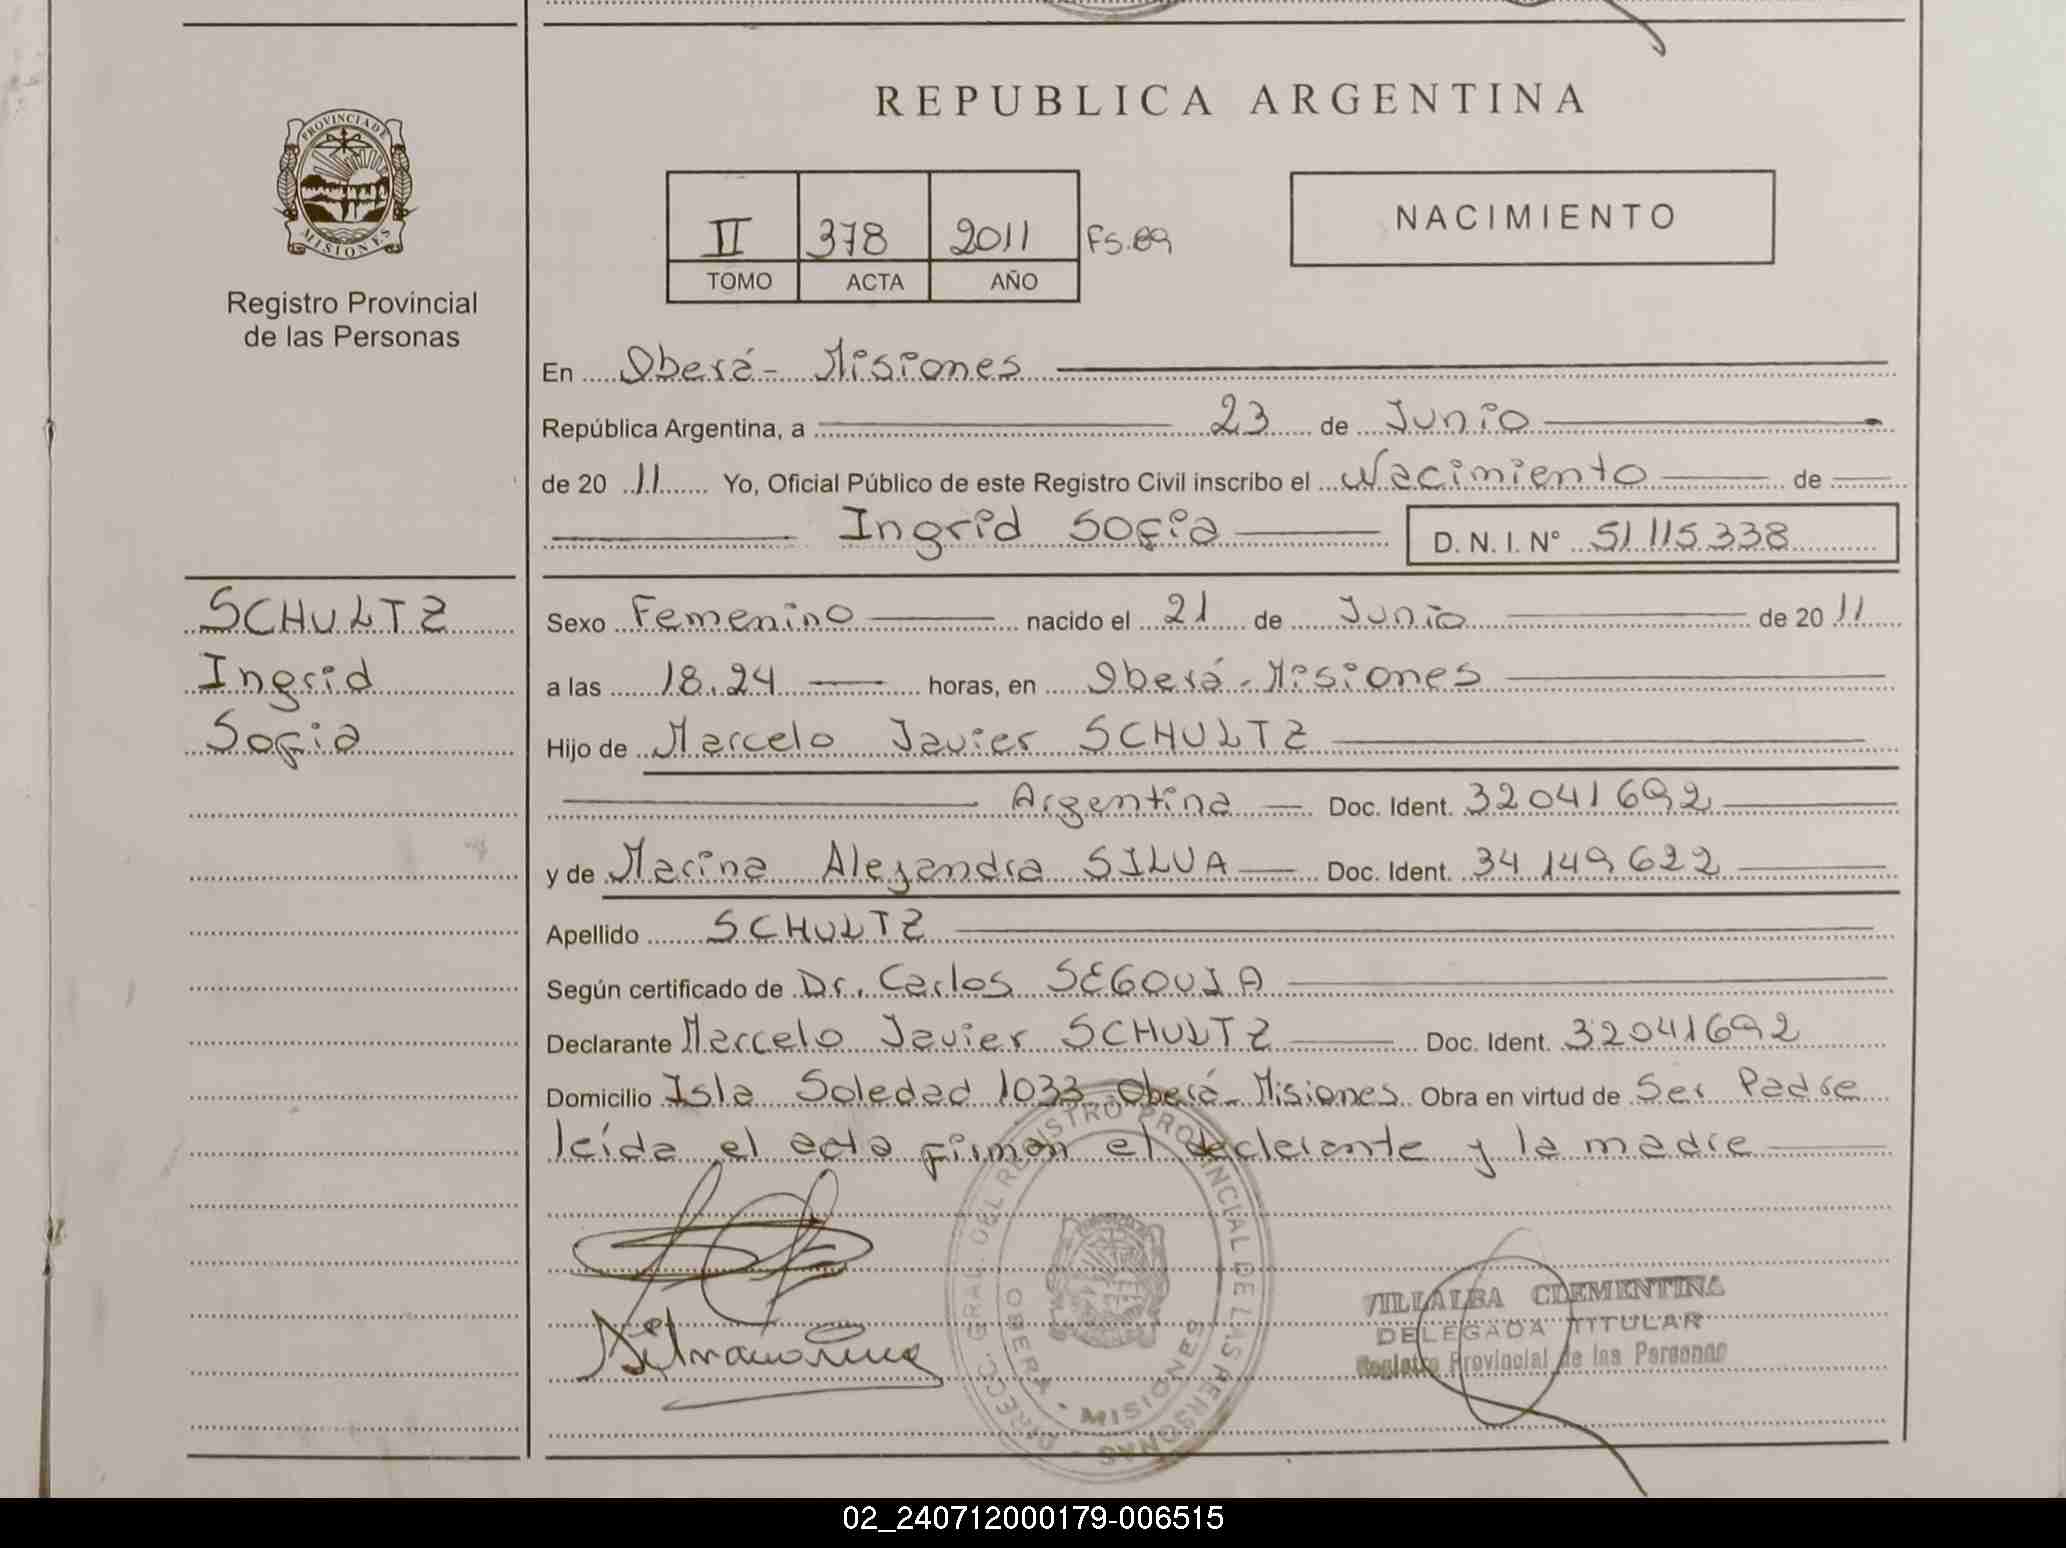 REPUBLICA ARGENTINA
PROVINCIA DE
MISIONES
Registro Provincial
de las Personas
II 378 2011 Fs.89
TOMO ACTA AÑO
NACIMIENTO
En Oberá - Misiones
República Argentina, a 23 de Junio
de 20 11 Yo, Oficial Público de este Registro Civil inscribo el Nacimiento de
Ingrid Sofia D. N. I. N° 51115338
SCHULTZ
Ingrid
Sofia
Sexo Femenino nacido el 21 de Junio de 20 11
a las 18.24 horas, en Oberá - Misiones
Hijo de Marcelo Javier SCHULTZ
Argentina Doc. Ident. 32041692
y de Marina Alejandra SILVA Doc. Ident. 34149622
Apellido SCHULTZ
Según certificado de Dr. Carlos SEGOVIA
Declarante Marcelo Javier SCHULTZ Doc. Ident. 32041692
Domicilio Isla Soledad 1033 Oberá - Misiones Obra en virtud de Ser Padre
leída el acta firman el declarante y la madre
DIRECC. GRAL. DEL REGISTRO PROVINCIAL DE LAS PERSONAS
OBERA - MISIONES
VILLALBA CLEMENTINA
DELEGADA TITULAR
Registro Provincial de las Personas
02_240712000179-006515